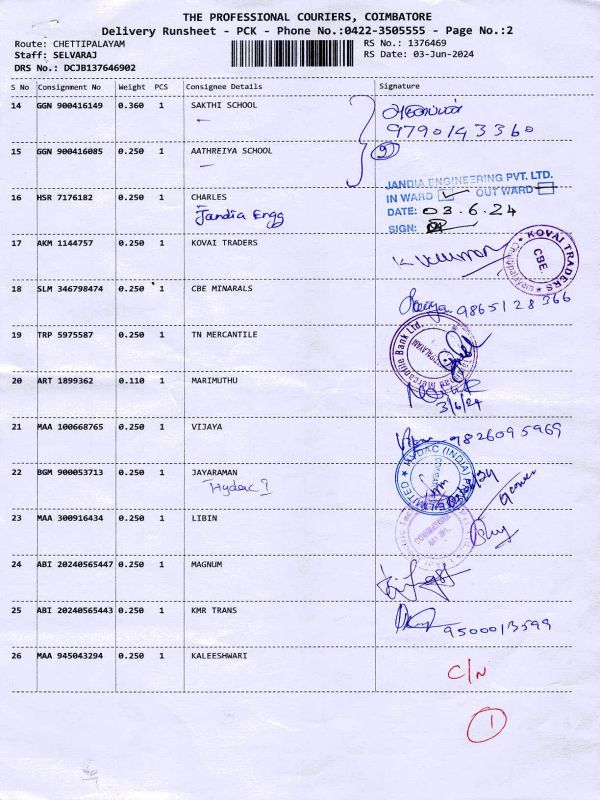 THE PROFESSIONAL COURIERS, COIMBATORE
Delivery Runsheet - PCK - Phone No.:0422-3505555 - Page No.:2
Route: CHETTIPALAYAM RS No.: 1376469
Staff: SELVARAJ RS Date: 03-Jun-2024
DRS No.: DCJB137646902
S No Consignment No Weight PCS Consignee Details Signature
14 GGN 900416149 0.360 1 SAKTHI SCHOOL
9790143360
15 GGN 900416085 0.250 1 AATHREIYA SCHOOL
9
JANDIA ENGINEERING PVT. LTD.
16 HSR 7176182 0.250 1 CHARLES IN WARD OUT WARD
Jandia Engg DATE: 03.6.24
SIGN:
17 AKM 1144757 0.250 1 KOVAI TRADERS
KOVAI TRADERS
CBE.
18 SLM 346798474 0.250 1 CBE MINARALS
9865128366
19 TRP 5975587 0.250 1 TN MERCANTILE
Mercantile Bank Ltd.
20 ART 1899362 0.110 1 MARIMUTHU
3/6/24
21 MAA 100668765 0.250 1 VIJAYA
9826095969
22 BGM 900053713 0.250 1 JAYARAMAN
Hydac I
HYDAC (INDIA) PRIVATE LIMITED
23 MAA 300916434 0.250 1 LIBIN
24 ABI 20240565447 0.250 1 MAGNUM
25 ABI 20240565443 0.250 1 KMR TRANS
9500013599
26 MAA 945043294 0.250 1 KALEESHWARI
C/N
1